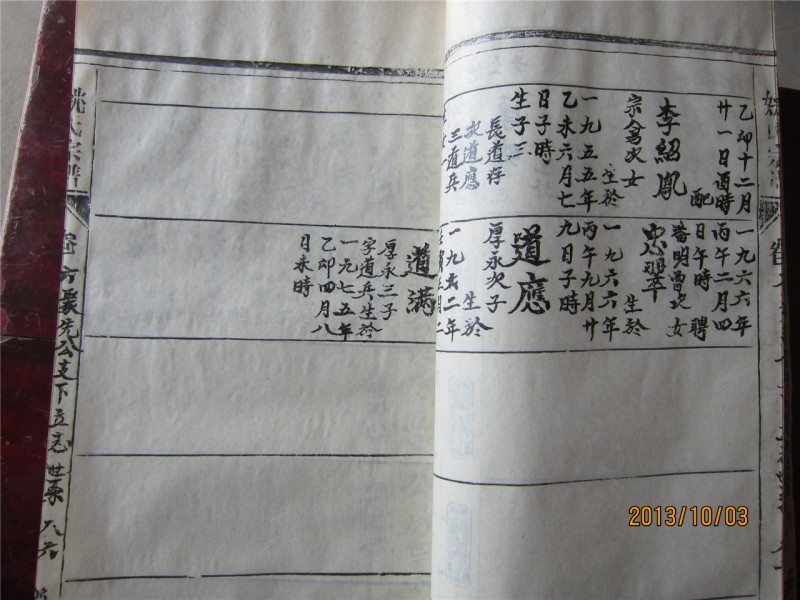 乙卯十二月
廿一日酉時
配
李紹鳳
宗禽次女
生於
一九五五年
乙未六月七
日子時
生子三
長道存
次道應
三道兵
一九六六年
丙午二月四
日午時 聘
曾次女
生於
一九六六年
丙午九月廿
九日子時
道應
厚永次子
生於
二年
道满
厚永三子
字道兵生於
一九七五年
乙卯四月八
日未時
姚氏宗譜
公支下立志世系
2013/10/03